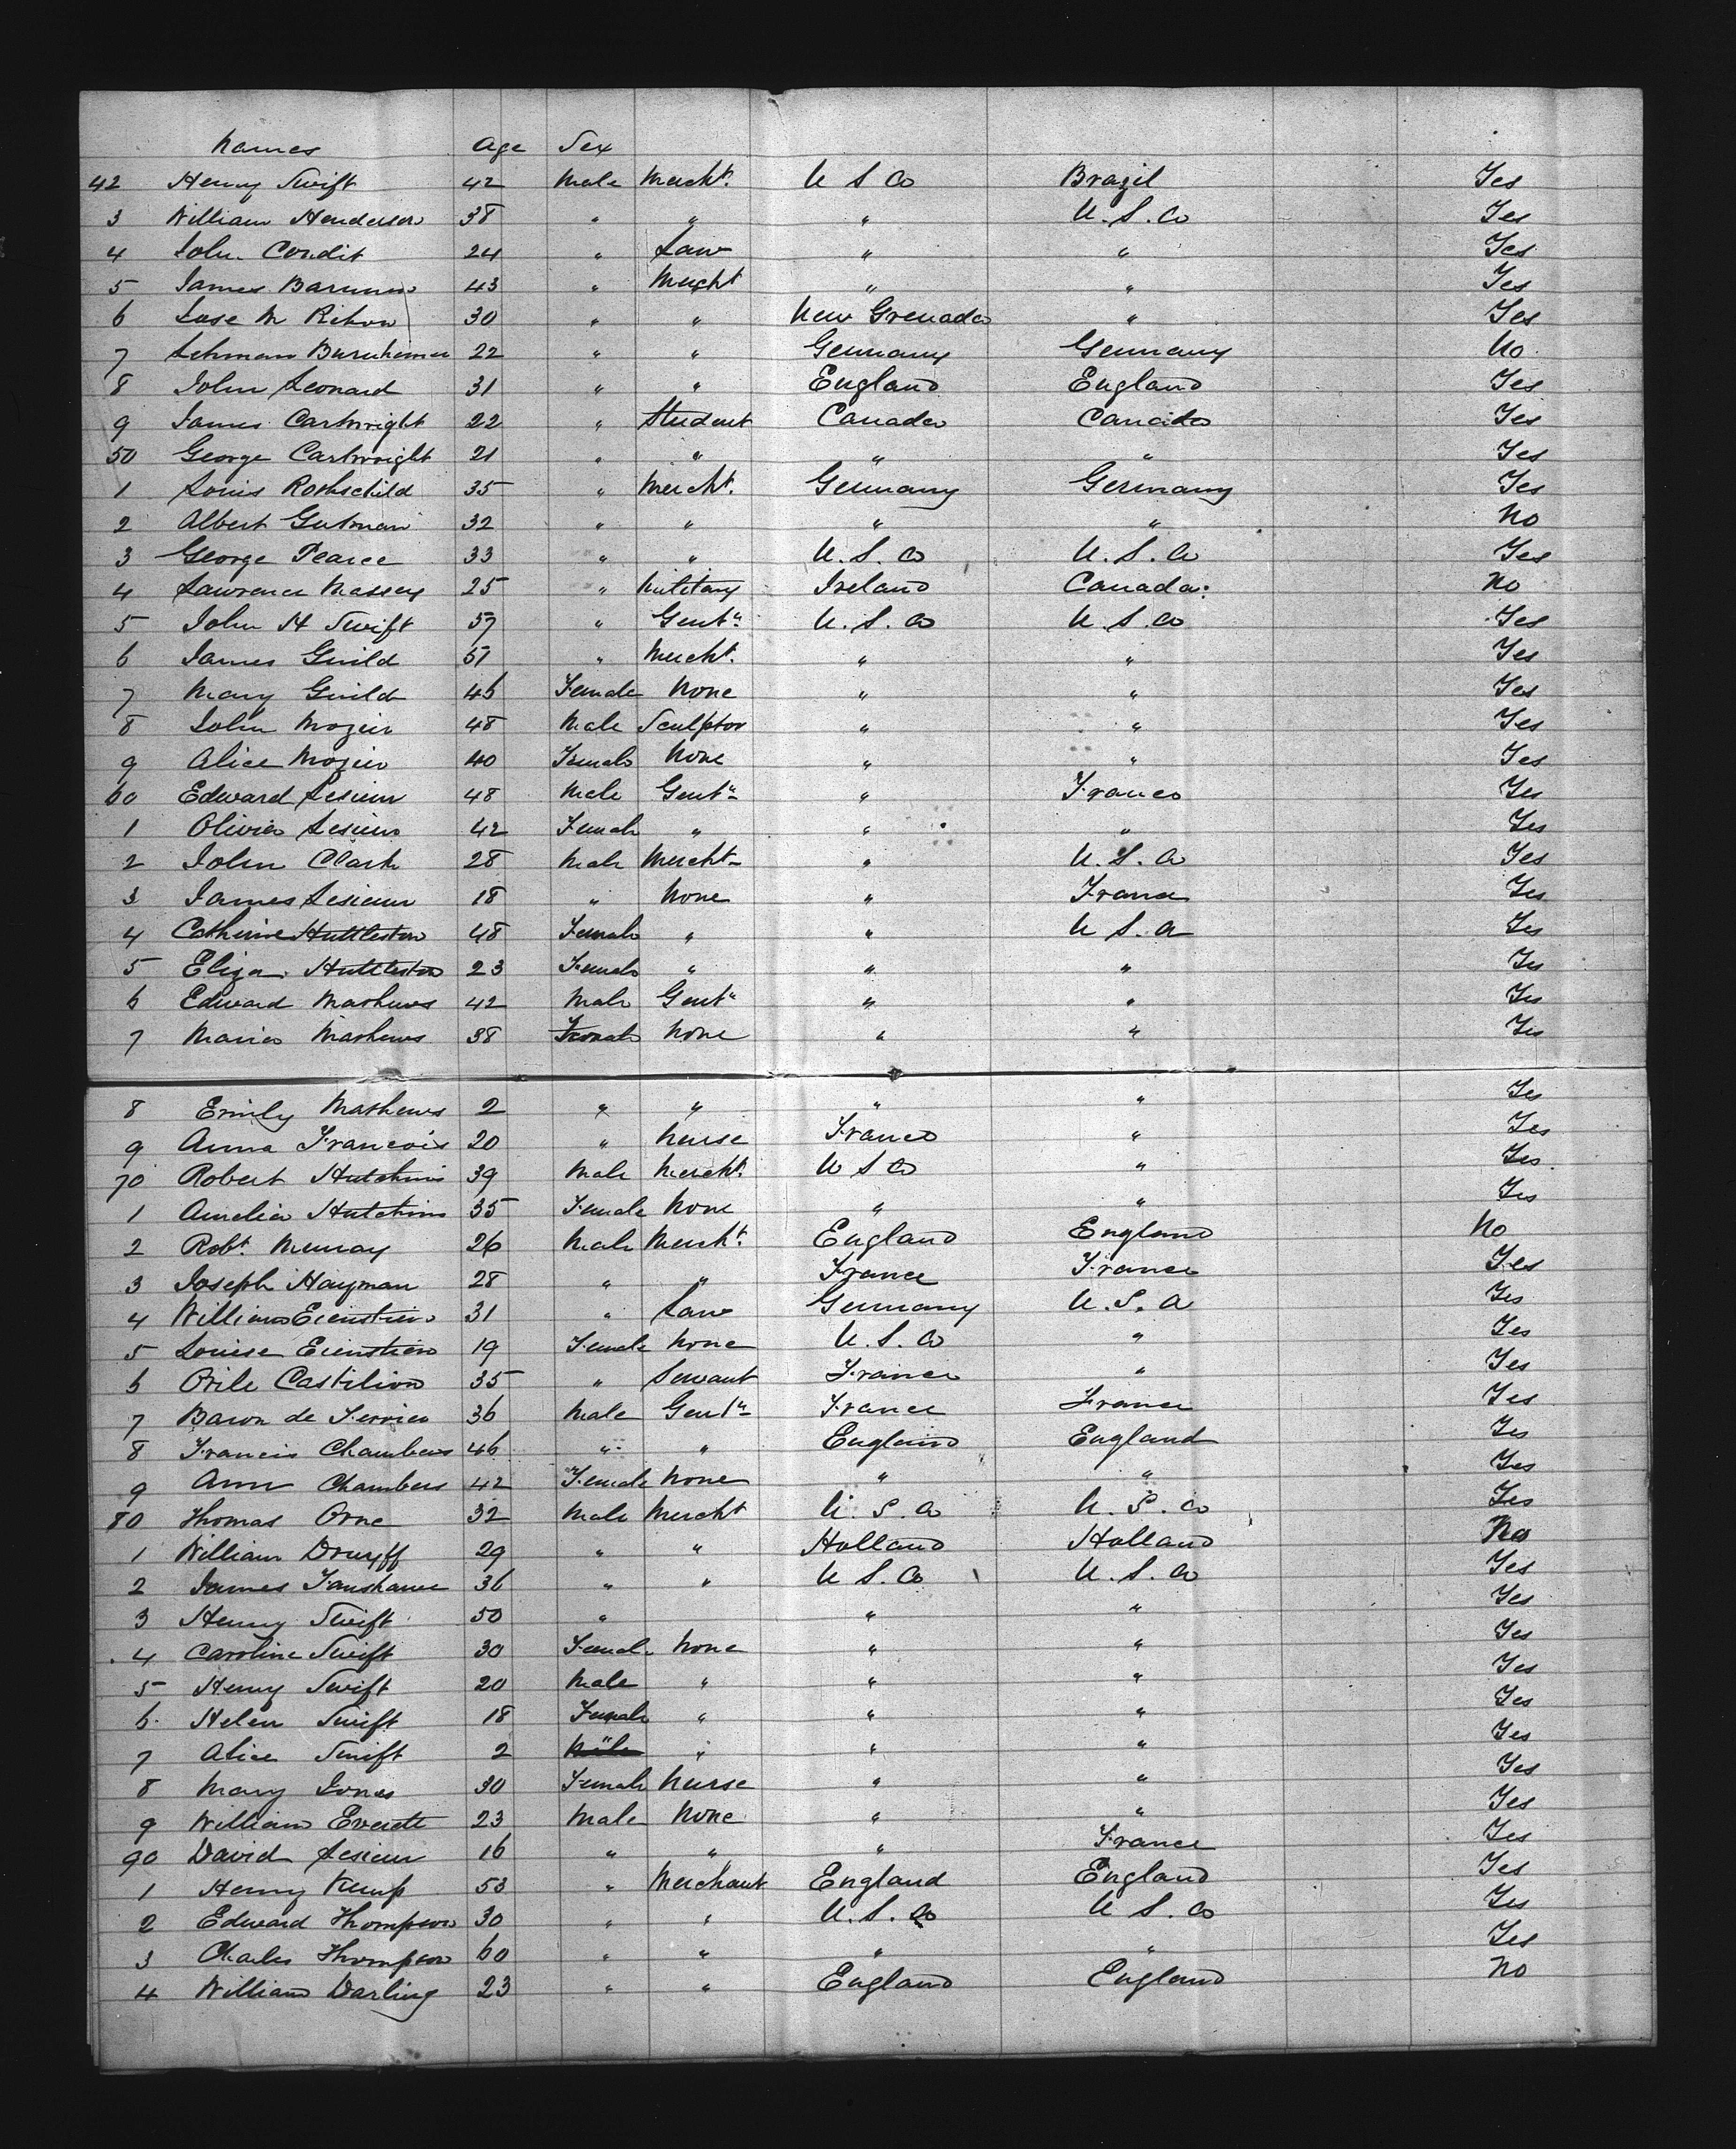 Names Age Sex
42 Henry Swift 42 Male Mercht. U S A Brazil Yes
3 William Henderson 38 " " " U.S.A Yes
4 John Condit 24 " Law " " Yes
5 James 43 " Mercht " " Yes
6 Jose M 30 " " New Grenada " Yes
7 Lehman Burnheimer 22 " " Germany Germany No
8 John Leonard 31 " " England England Yes
9 James Cartwright 22 " Student Canada Canada Yes
50 George Cartwright 21 " " " " Yes
1 Louis Rothschild 35 " Mercht. Germany Germany Yes
2 Albert Gutman 32 " " " " No
3 George Pearce 33 " " U.S.A U.S.A Yes
4 Lawrence Massey 25 " Military Ireland Canada. No
5 John H Swift 57 " Gentn U.S.A U S.A Yes
6 James Guild 51 " Mercht. " " Yes
7 Mary Guild 46 Female None " " Yes
8 John Mozier 48 Male Sculptor " " Yes
9 Alice Mozier 40 Female None " " Yes
60 Edward Lesieur 48 Male Gentn " France Yes
1 Olivia Lesieur 42 Female " " " Yes
2 John Clark 28 Male Mercht " U.S.A Yes
3 James Lesieur 18 " None " France Yes
4 Catherine Huttleston 48 Female " " U S.A Yes
5 Eliza Huttleston 23 Female " " " Yes
6 Edward Mathews 42 Male Gentn " " Yes
7 Maria Mathews 38 Female None " " Yes
8 Emily Mathews 2 " " " " Yes
9 Anna Francois 20 " Nurse France " Yes
70 Robert Hutchins 39 Male Mercht. U S A " Yes
1 Amelia Hutchins 35 Female None " " Yes
2 Robt. Murray 26 Male Mercht. England England No
3 Joseph Hayman 28 " " France France Yes
4 William Eienstien 31 " Law Germany U.S.A Yes
5 Louise Eienstien 19 Female None U.S.A " Yes
6 Castilion 35 " Servant France " Yes
7 Baron de 36 Male Gentn France France Yes
8 Francis Chambers 46 " " England England Yes
9 Ann Chambers 42 Female None " " Yes
80 Thomas Orne 32 Male Mercht U.S.A U.S.A Yes
1 William Druyff 29 " " Holland Holland No
2 James Fanshawe 36 " " U S.A U.S.A Yes
3 Henry Swift 50 " " " Yes
4 Caroline Swift 30 Female None " " Yes
5 Henry Swift 20 Male " " " Yes
6 Helen Swift 18 Female " " " Yes
7 Alice Swift 2 Male " " " Yes
8 Mary Jones 30 Female Nurse " " Yes
9 William Everett 23 Male None " " Yes
90 David Lesieur 16 " " " France Yes
1 Henry Kemp 53 " Merchant England England Yes
2 Edward Thompson 30 " " U.S.A U S.A Yes
3 Charles Thompson 60 " " " " Yes
4 William Darling 23 " " England England No